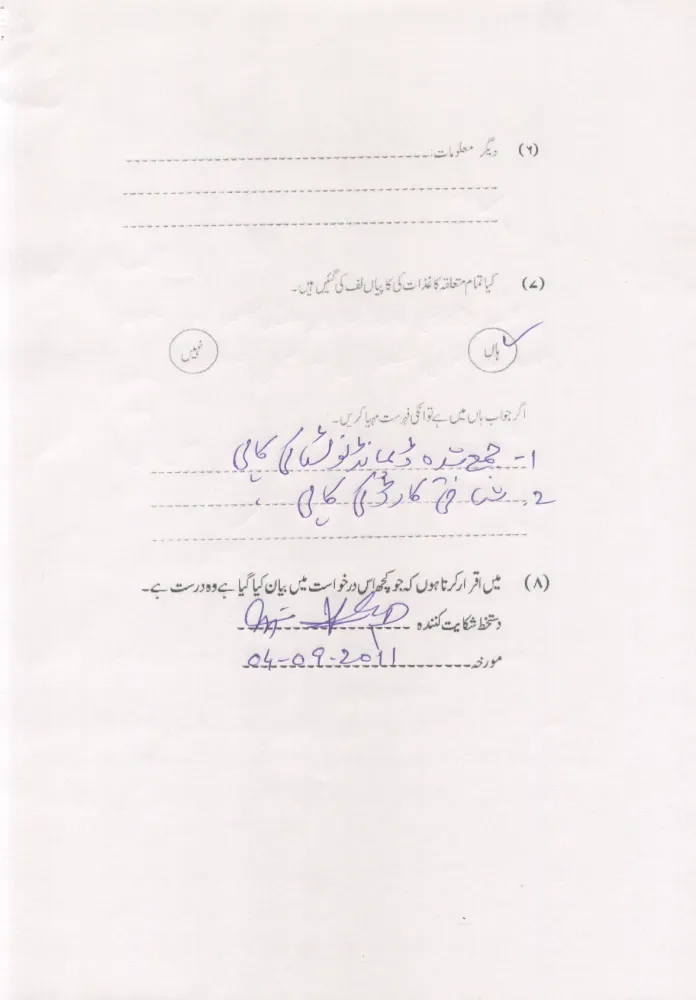 (۶) دیگر معلومات:
(۷) کیا تمام متعلقہ کاغذات کی کاپیاں لف کی گئیں ہیں۔
ہاں نہیں
اگر جواب ہاں میں ہے تو انکی فہرست مہیا کریں۔
1- جمع شدہ ڈیمانڈ نوٹس کی کاپی
2. شناختی کارڈ کی کاپی ،
(۸) میں اقرار کرتا ہوں کہ جو کچھ اس درخواست میں بیان کیا گیا ہے وہ درست ہے۔
دستخط شکایت کنندہ
مورخہ 04-09-2011